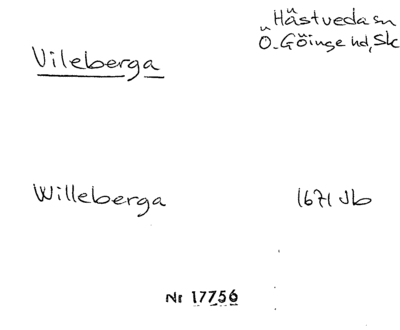 Vileberga
Hästveda sn
Ö. Göinge hd, Sk
Willeberga
1671 Jb
Nr 17756